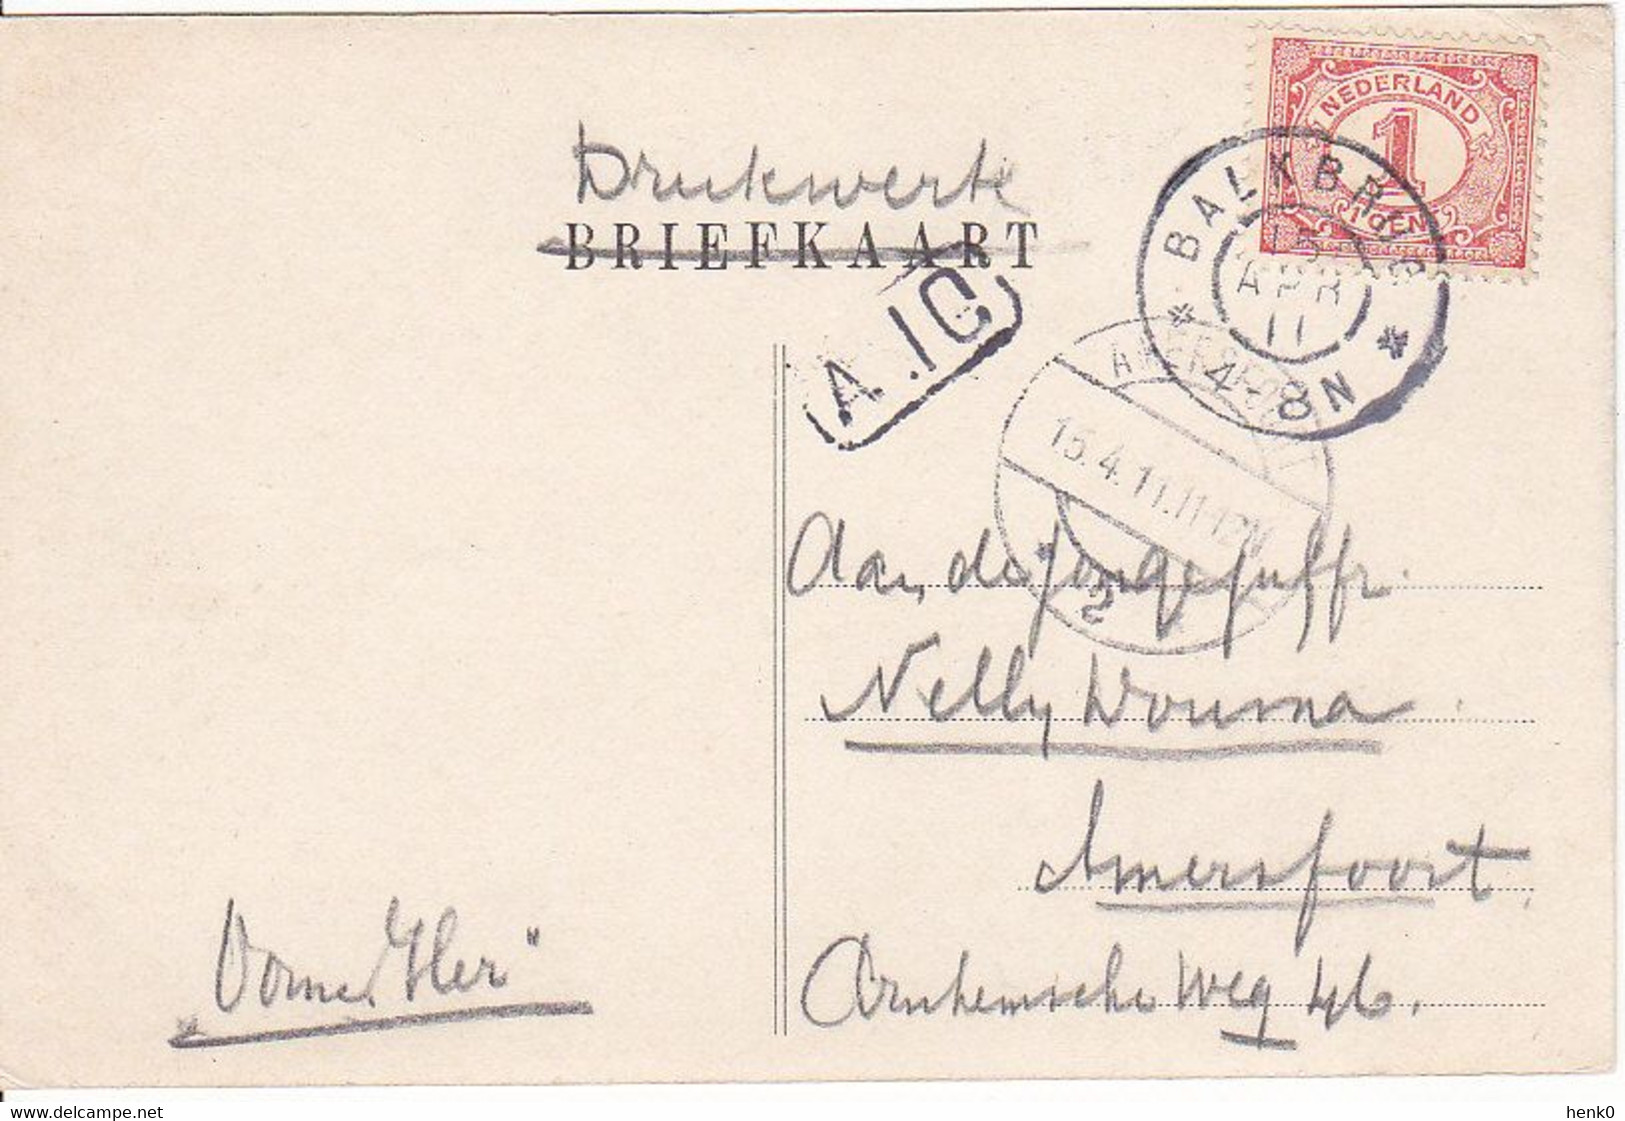 NEDERLAND
1
1 CENT
BALKBRUG
15
APR
11
4-8N
Drukwerk
BRIEFKAART
A.1C
AMERSFOORT
15.4.11.11-12N
2
Aan de jongejuffr.
Nelly Douma
Amersfoort,
Arnhemsche Weg 46.
Oome
delcampe.net
henk0